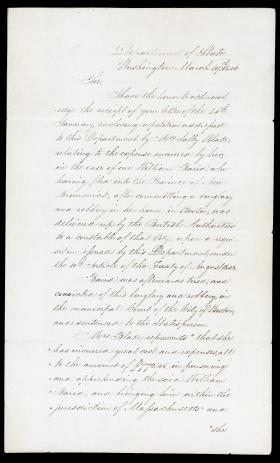 Department of State
Washington March
Sir,
I have the honor to acknowl-
edge the receipt of your letter of the 24th
January, enclosing a petition addressed
to this Department by Mrs Sally Blake,
relating to the expense incurred by her,
in the case of one William Baird, who
having fled into the Province of New
Brunswick, after committing a burglary
and robbery in her house in Boston, was
delivered up by the British Authorities
to a constable of that City, upon a requi-
sition issued by this Department, under
the 10th Article of the Treaty of August 1842.
Baird was afterwards tried, and
convicted of this burglary and robbery, in
the municipal Court of the City of Boston
and sentenced to the State prison.
Mrs Blake represents "that she
has incurred great cost and expense, all
to the amount of in pursuing
and apprehending the said William
Baird, and bringing him within the
jurisdiction of Massachusetts and
"she